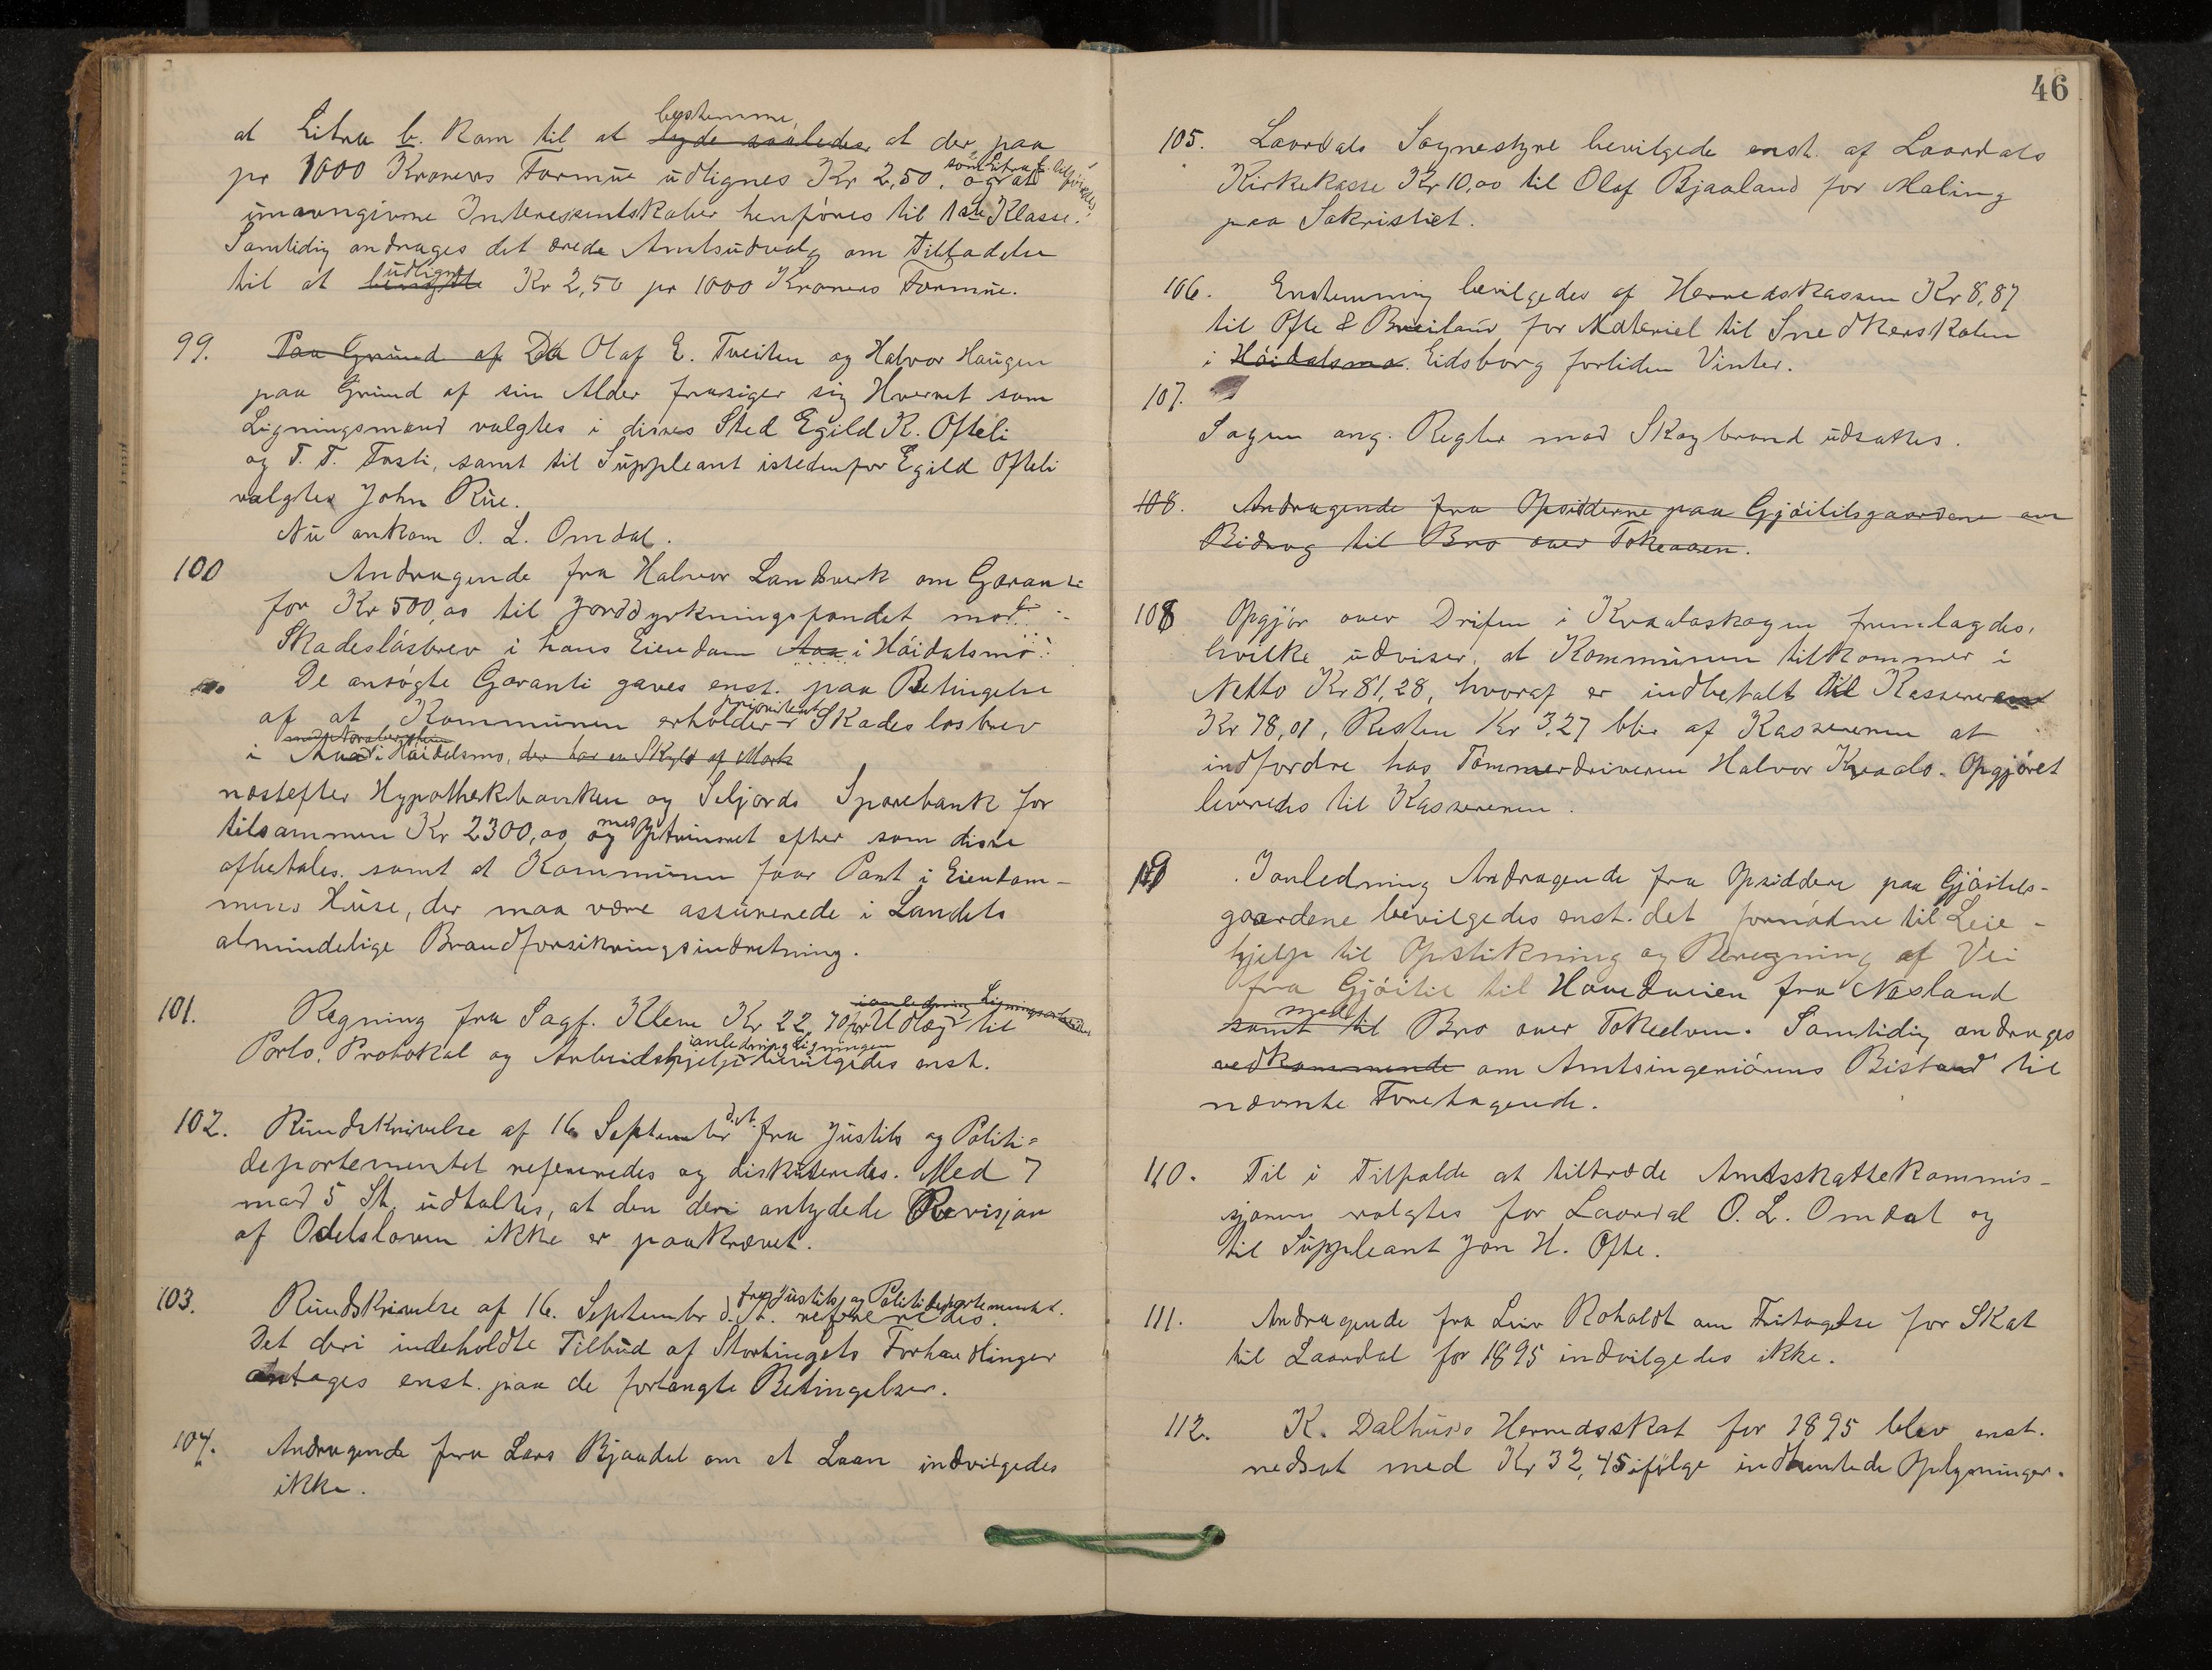 at Litra b. kom til at bestemme,
lyde saaledes at der paa
pr 1000 Kroners Formue udlignes Kr 2,50. og at som Litra c tilføiedes:
unavngivne Interessentskaber henføres til 1ste Klasse.
Samtidig andrages det ærede Amtsudvalg om Tilladelse
til at benytte udligne Kr 2,50 pr 1000 Kroners Formue.
99. Paa Grund af Da Olaf E. Tveiten og Halvor Haugen
paa Grund af sin Alder frasiger sig Hvervet som
Ligningsmænd valgtes i disses Sted Egild K. Ofteli
og T. T. Fosli, samt til Suppleant istedenfor Egild Ofteli
valgtes John Rue.
Nu ankom O. L. Omdal.
100 Andragende fra Halvor Landsverk om Garanti
for Kr 500,00 til Jorddyrkningsfondet mod
Skadesløsbrev i hans Eiendom Aaa i Høidalsmo:
De ansøgte Garanti gaves enst. paa Betingelse
af at Kommunen erholder prioritert Skadesløsbrev
i i Høidalsmo, der har en Skyld af Mark
næstefter Hypothekbanken og Seljords Sparebank for
tilsammen Kr 2300,00 og med Optrinsret efter som disse
afbetales. samt at Kommunen faar Pant i Eiendom-
mens Huse, der maa være assurerede i Landets
almindelige Brandforsikringsindretning.
101. Regning fra Sagf. Klem Kr 22,70 for Udlæg til ianledning Ligningsarbeidet
Porto, Protokol og Arbeidshjelp ianledning Ligningen bevilgedes enst.
102. Rundskrivelse af 16 September d.A. fra Justits og Politi-
departementet refereredes og diskuteredes. Med 7
mod 5 St. udtaltes, at den deri antydede Revisjon
af Odelsloven ikke er paakrævet.
103. Rundskrivelse af 16. September d.A. fra Justits og Politidepartementet. refereredes.
Det deri indeholdte Tilbud af Stortingets Forhandlinger
antages enst. paa de forlangte Betingelser.
104. Andragende fra Lars Bjaadal om et Laan indvilgedes
ikke.
46
105. Laardals Sognestyre bevilgede enst. af Laardals
Kirkekasse Kr 10,00 til Olaf Bjaaland for Maling
paa Sakristiet.
106. Enstemmig bevilgedes af Herredskassen Kr 8,87
til Ofte & Breiland for Materiel til Snedkerskolen
i Høidalsmo. Eidsborg forliden Vinter.
107.
Sagen ang. Regler mod Skogbrand udsattes.
108. Andragende fra Opsidderne paa Gjøitilsgaardene om
Bidrag til Bro over Tokeaaen.
108 Opgjør over Driften i Kvaalaskogen fremlagdes,
hvilke udviser, at Kommunen tilkommer i
Netto Kr 81,28, hvoraf er indbetalt til Kassereren
Kr 78,01, Resten Kr 3,27 blir af Kassereren at
indfordre hos Tømmerdriveren Halvor Kvaale. Opgjøret
leveredes til Kassereren.
109 Ianledning Andragende fra Opsiddere paa Gjøitils-
gaardene bevilgedes enst. det fornødne til Leie-
hjelp til Opstikning og Beregning af Vei
fra Gjøitil til Hovedveien fra Næsland
samt med til Bro over Tokeelven. Samtidig andrages
vedkommende om Amtsingeniørens Bistand til
nævnte Foretagende.
110. Til i Tilfælde at tiltræde Amtsskattekommis-
sjonen valgtes for Laardal O. L. Omdal og
til Suppleant Jon H. Ofte.
111. Andragende fra Leiv Roholdt om Fritagelse for Skat
til Laardal for 1895 indvilgedes ikke.
112. K. Dalhus's Herredsskat for 1895 blev enst.
nedsat med Kr 32,45 ifølge indhentede Oplysninger.